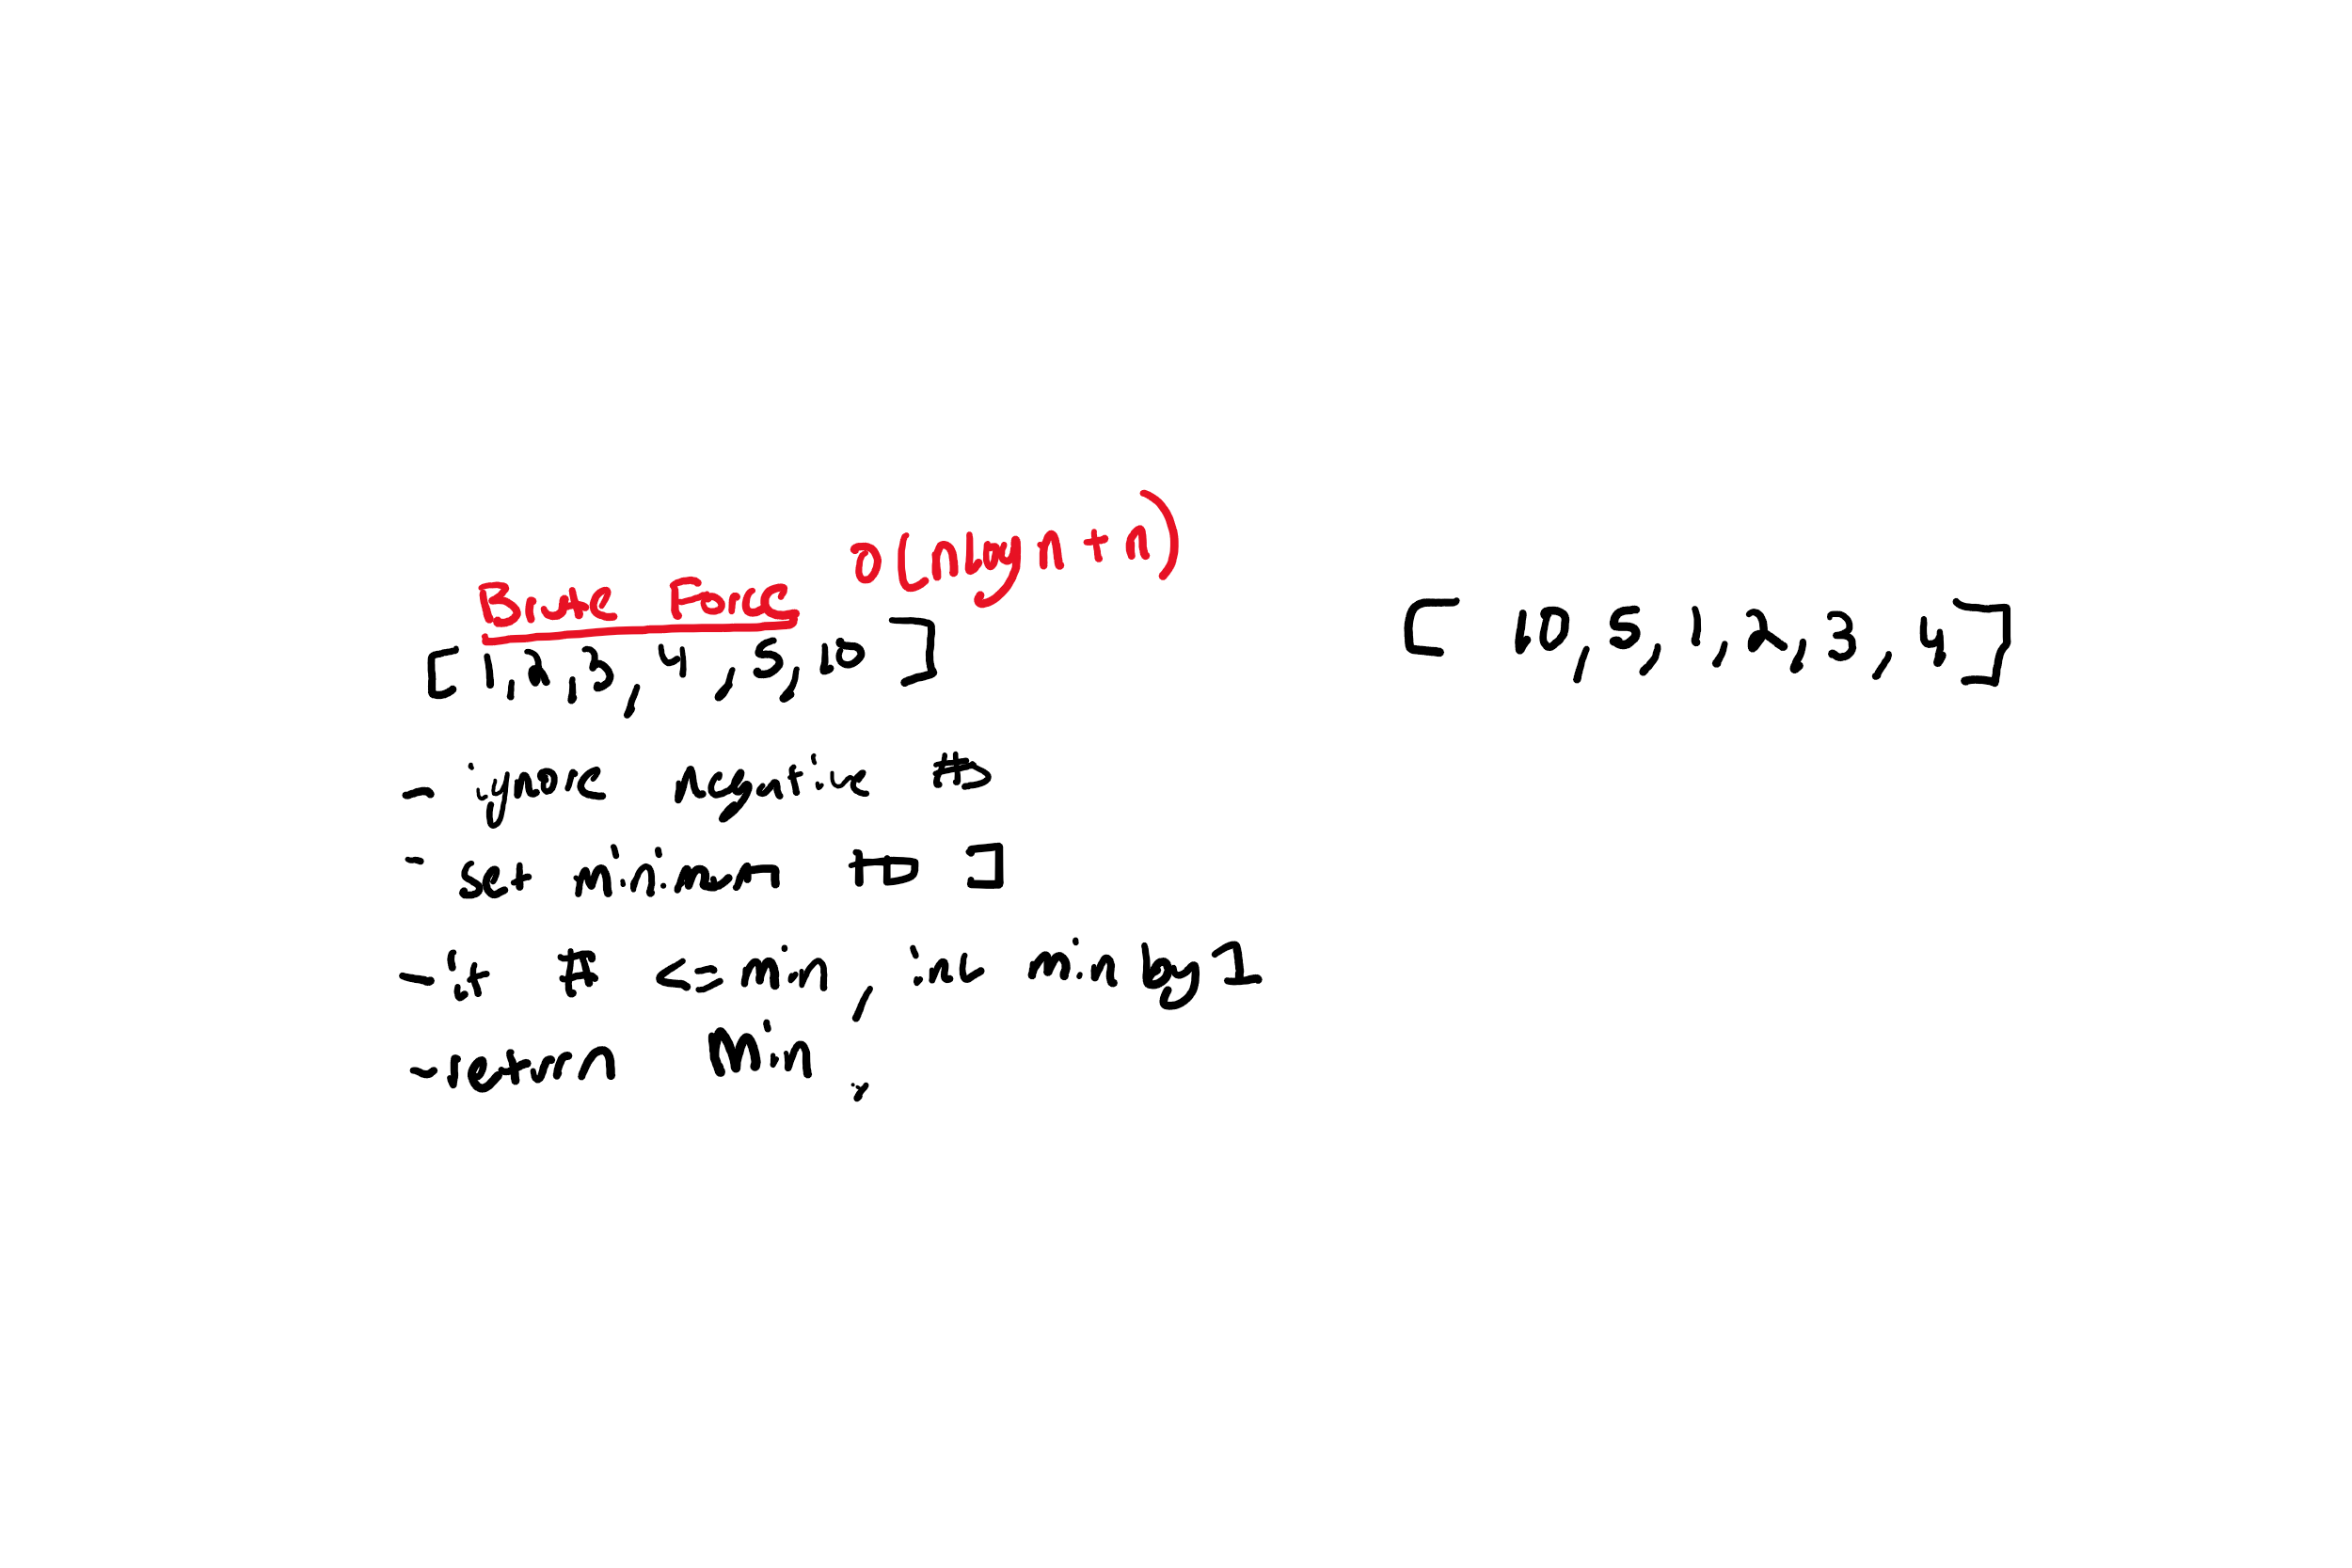 Brute Force O(nlog n + n)
[1,2,3,4,5,10]
[10,5,1,2,3,4]
- ignore negative #s
- set minimum to 1
- if # <= min, inc min by 1
- return Min;